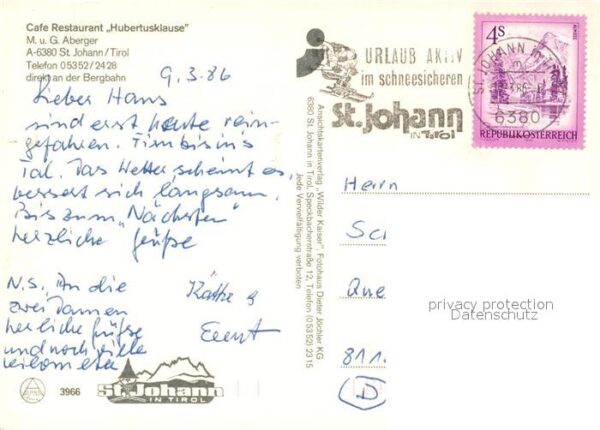 Cafe Restaurant „Hubertusklause"
M. u. G. Aberger
A-6380 St. Johann/Tirol
Telefon 05352/2428
direkt an der Bergbahn
9.3.86
Lieber Hans
sind erst heute rein-
gefahren. Firn bis ins
Tal. Das Wetter scheint es,
bessert sich langsam.
Bis zum „Nächsten"
herzliche Grüße
Käthe &
N.S. An die
zwei Damen
herzliche Grüße
und noch viele
3966
St. Johann
IN TIROL
Ansichtskartenverlag „Wilder Kaiser", Fotohaus Dieter Jöchler KG
6380 St. Johann in Tirol, Speckbacherstraße 12, Telefon (05352) 2315
Jede Vervielfältigung verboten
URLAUB AKTIV
im schneesicheren
St. Johann
IN TIROL
ST. JOHANN in T
6380
4S
REPUBLIK ÖSTERREICH
Herrn
Sc
Que
811
D
privacy protection
Datenschutz